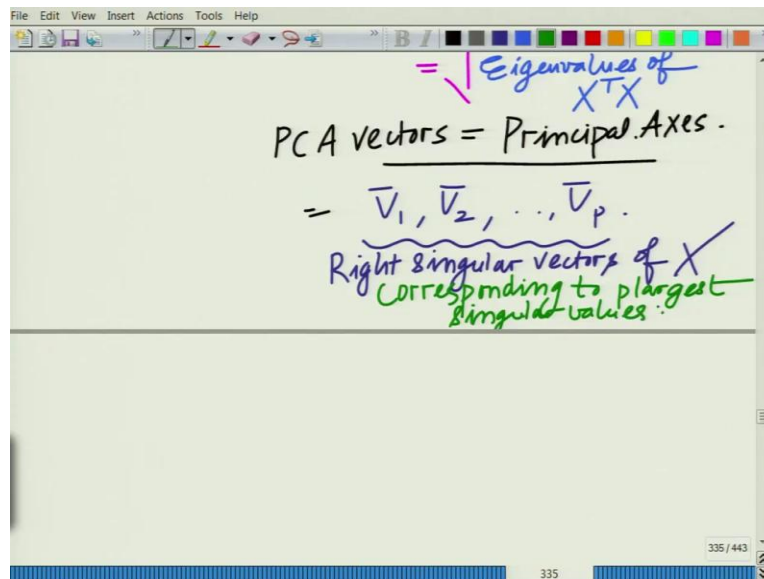 File Edit View Insert Actions Tools Help
B I
= √ Eigenvalues of
XᵀX
PCA vectors = Principal Axes.
= V̅₁, V̅₂, .., V̅ₚ.
Right Singular vectors of X
Corresponding to p largest
Singular values.
335 / 443
335